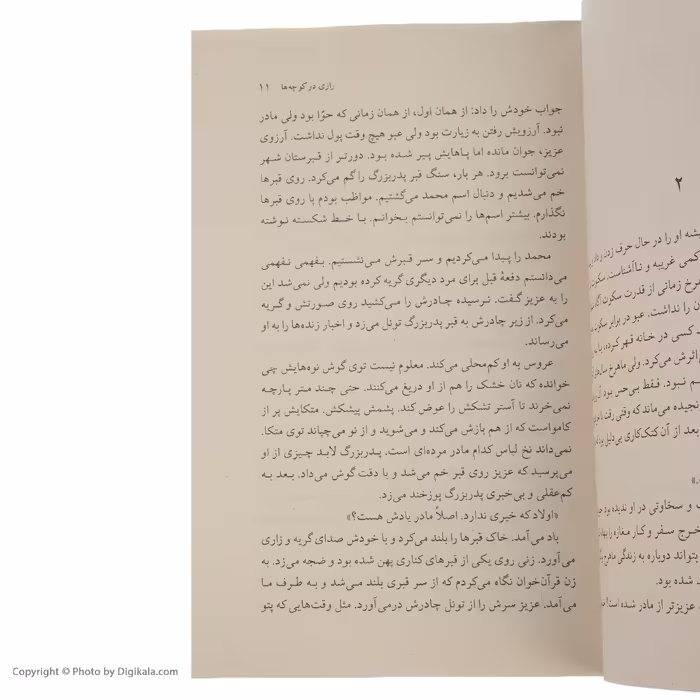 رازی در کوچه‌ها ۱۱
جواب خودش را داد: از همان اول، از همان زمانی که حوّا بود ولی مادر
نبود. آرزویش رفتن به زیارت بود ولی عبو هیچ وقت پول نداشت. آرزوی
عزیز، جوان مانده اما پاهایش پیر شده بود. دورتر از قبرستان شهر
نمی‌توانست برود. هر بار، سنگ قبر پدربزرگ را گم می‌کرد. روی قبرها
خم می‌شدیم و دنبال اسم محمد می‌گشتیم. مواظب بودم پا روی قبرها
نگذارم. بیشتر اسم‌ها را نمی‌توانستم بخوانم. با خط شکسته نوشته
بودند.
محمد را پیدا می‌کردیم و سر قبرش می‌نشستیم. بفهمی نفهمی
می‌دانستم دفعهٔ قبل برای مرد دیگری گریه کرده بودیم ولی نمی‌شد این
را به عزیز گفت. نرسیده چادرش را می‌کشید روی صورتش و گریه
می‌کرد. از زیر چادرش به قبر پدربزرگ تونل می‌زد و اخبار زنده‌ها را به او
می‌رساند.
عروس به او کم‌محلی می‌کند. معلوم نیست توی گوش نوه‌هایش چی
خوانده که نان خشک را هم از او دریغ می‌کنند. حتی چند متر پارچه
نمی‌خرند تا آستر تشکش را عوض کند. پشمش پیشکش. متکایش پر از
کامواست که از هم بازش می‌کند و می‌شوید و از نو می‌چپاند توی متکا.
نمی‌داند نخ لباس کدام مادر مرده‌ای است. پدربزرگ لابد چیزی از او
می‌پرسید که عزیز روی قبر خم می‌شد و با دقت گوش می‌داد. بعد به
کم‌عقلی و بی‌خبری پدربزرگ پوزخند می‌زد.
«اولاد که خیری ندارد. اصلاً مادر یادش هست؟»
باد می‌آمد. خاک قبرها را بلند می‌کرد و با خودش صدای گریه و زاری
می‌آورد. زنی روی یکی از قبرهای کناری پهن شده بود و ضجه می‌زد. به
زن قرآن‌خوان نگاه می‌کردم که از سر قبری بلند می‌شد و به طرف ما
می‌آمد. عزیز سرش را از تونل چادرش درمی‌آورد. مثل وقت‌هایی که پتو
۲
او را در حال حرف زدن
کمی غریبه و ناآشناست.
زمانی از قدرت سکوت
را نداشت. عبو در برابر سکوت
کسی در خانه قهر کرده،
می‌کرد. ولی ماهرخ
نبود. فقط بی‌حس بود
می‌ماند که وقتی رفت
بعد از آن کتک‌کاری بی‌دلیل
و سخاوتی در او ندیده بود
خرج سفر و کار مغازه را
بتواند دوباره به زندگی
شده بود.
عزیزتر از مادر شده است!
Copyright © Photo by Digikala.com